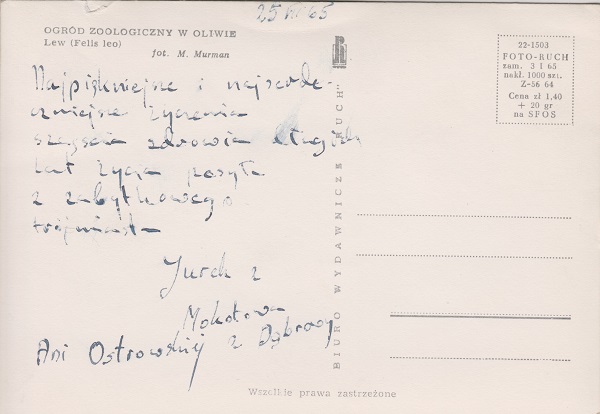 25 VII 65
OGRÓD ZOOLOGICZNY W OLIWIE
Lew (Felis leo)
fot. M. Murman
Najpiękniejne i najserde-
czniejne życzenia
szczęścia zdrowia długich
lat życia posyła
z zabytkowego
trójmiasta
Jurek z
Mokotowa
Ani Ostrowskiej z Dąbrowy
BIURO WYDAWNICZE „RUCH”
22-1503
FOTO-RUCH
zam. 3 I 65
nakł. 1000 szt.
Z-56 64
Cena zł 1,40
+ 20 gr
na SFOS
Wszelkie prawa zastrzeżone